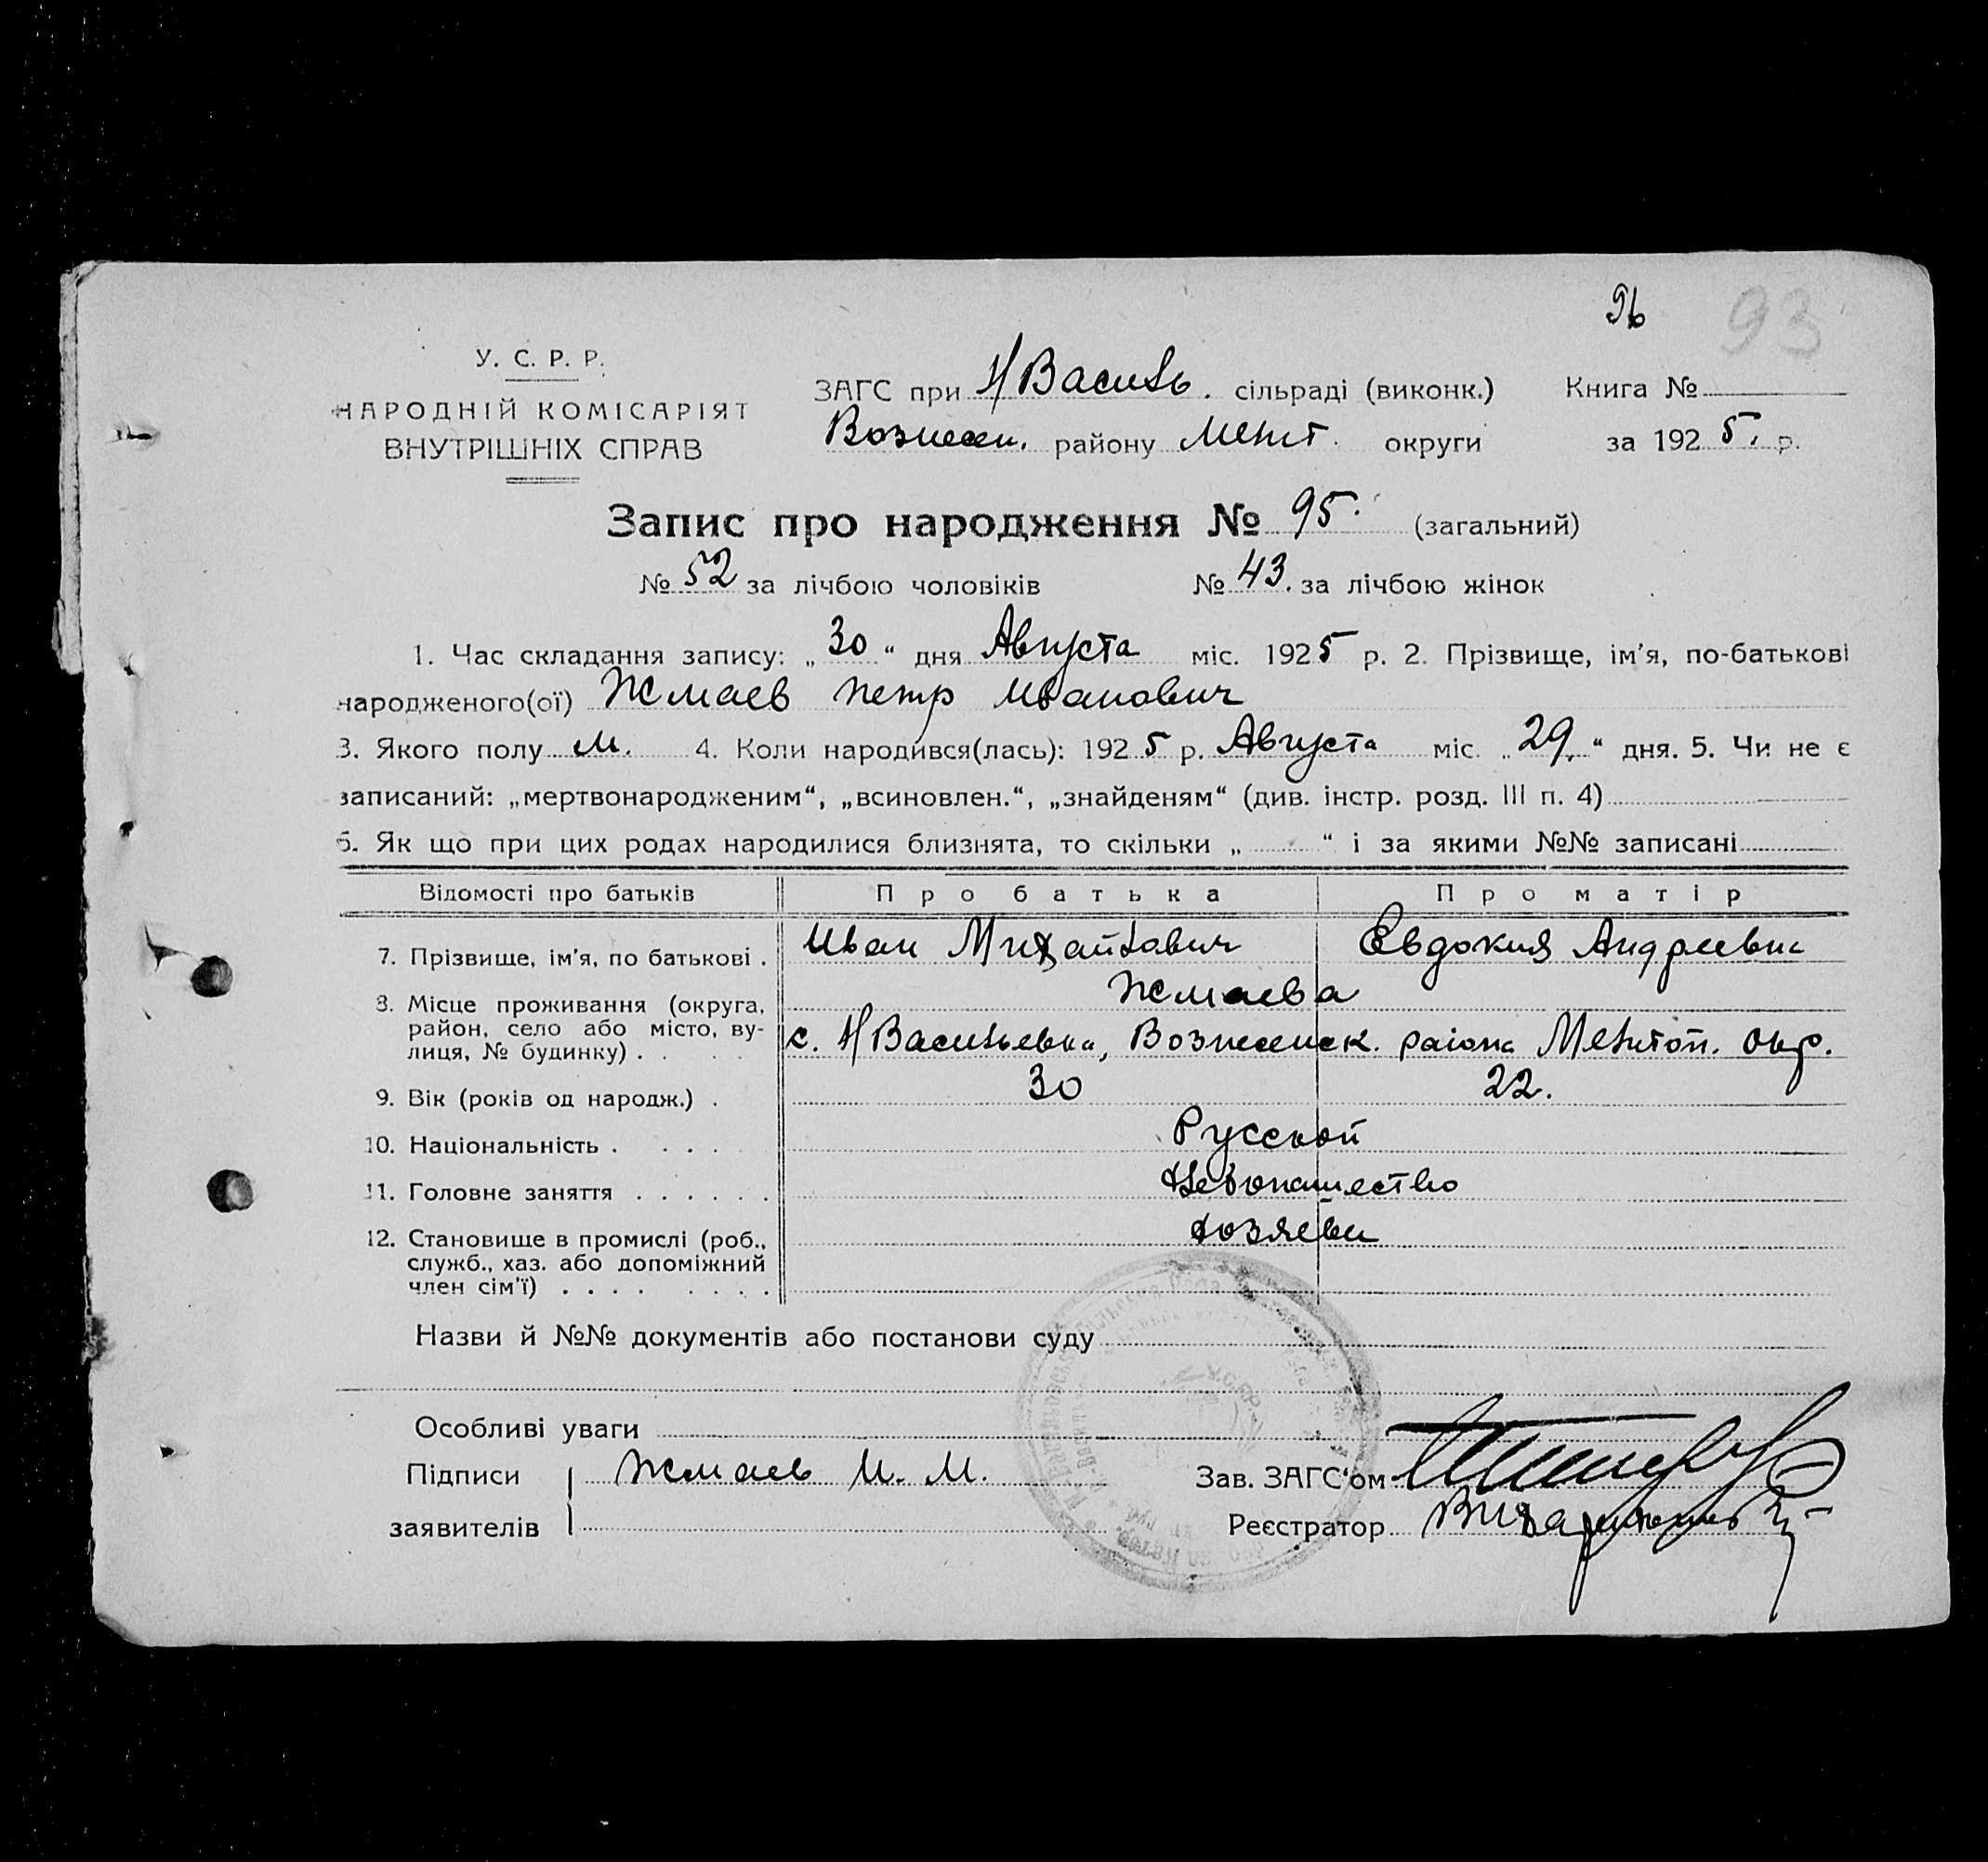 96 93
У. С. Р. Р.
НАРОДНІЙ КОМІСАРІЯТ
ВНУТРІШНІХ СПРАВ
ЗАГС при Н/Василь. сільраді (виконк.) Книга №
Вознесен. району Мелит. округи за 1925. р.
Запис про народження № 95. (загальний)
№ 52 за лічбою чоловіків № 43. за лічбою жінок
1. Час складання запису: „30“ дня Августа міс. 1925 р. 2. Прізвище, ім'я, по-батькові
народженого(ої) Жмаев Петр Иванович
3. Якого полу м. 4. Коли народився(лась): 1925 р. Августа міс. „29.“ дня. 5. Чи не є
записаний: „мертвонародженим“, „всиновлен.“, „знайденям“ (див. інстр. розд. III п. 4)
6. Як що при цих родах народилися близнята, то скільки „ “ і за якими №№ записані
Відомості про батьків Про батька Про матір
7. Прізвище, ім'я, по батькові . Иван Михайлович Евдокия Андреевна
Жмаева
8. Місце проживання (округа, район, село або місто, ву-лиця, № будинку) . . с. Н/Васильевка, Вознесенск. района Мелитоп. Окр.
9. Вік (років од народж.) . 30 22.
10. Національність . . . . Русской
11. Головне заняття . . . . . . Хлебопашество
12. Становище в промислі (роб., служб., хаз. або допоміжний член сім'ї) . . . . . . . . Хозяева
Назви й №№ документів або постанови суду
У.С.Р.Р.
Особливі уваги
Підписи Жмаев И. М. Зав. ЗАГС'ом
заявителів Реєстратор